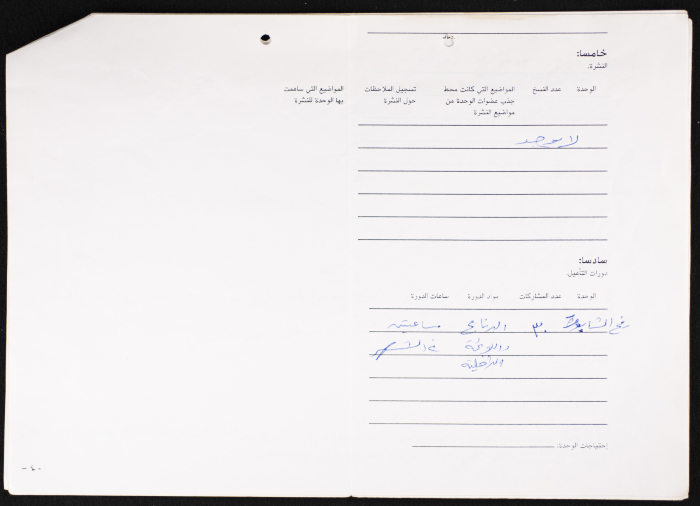 خامسا:
النشرة.
الوحدة عدد النسخ المواضيع التي كانت محط تسجيل الملاحظات المواضيع التي ساهمت
جذب عضوات الوحدة من حول النشرة بها الوحدة للنشرة
مواضيع النشرة
لا يوجد
سادسا:
دورات التأهيل.
الوحدة عدد المشاركات مواد الدورة ساعات الدورة
رفح الشابورة ٣٠ البرنامج ساعتين
واللائحة في الشهر
الداخلية
إحتياجات الوحدة:
- ٤ -